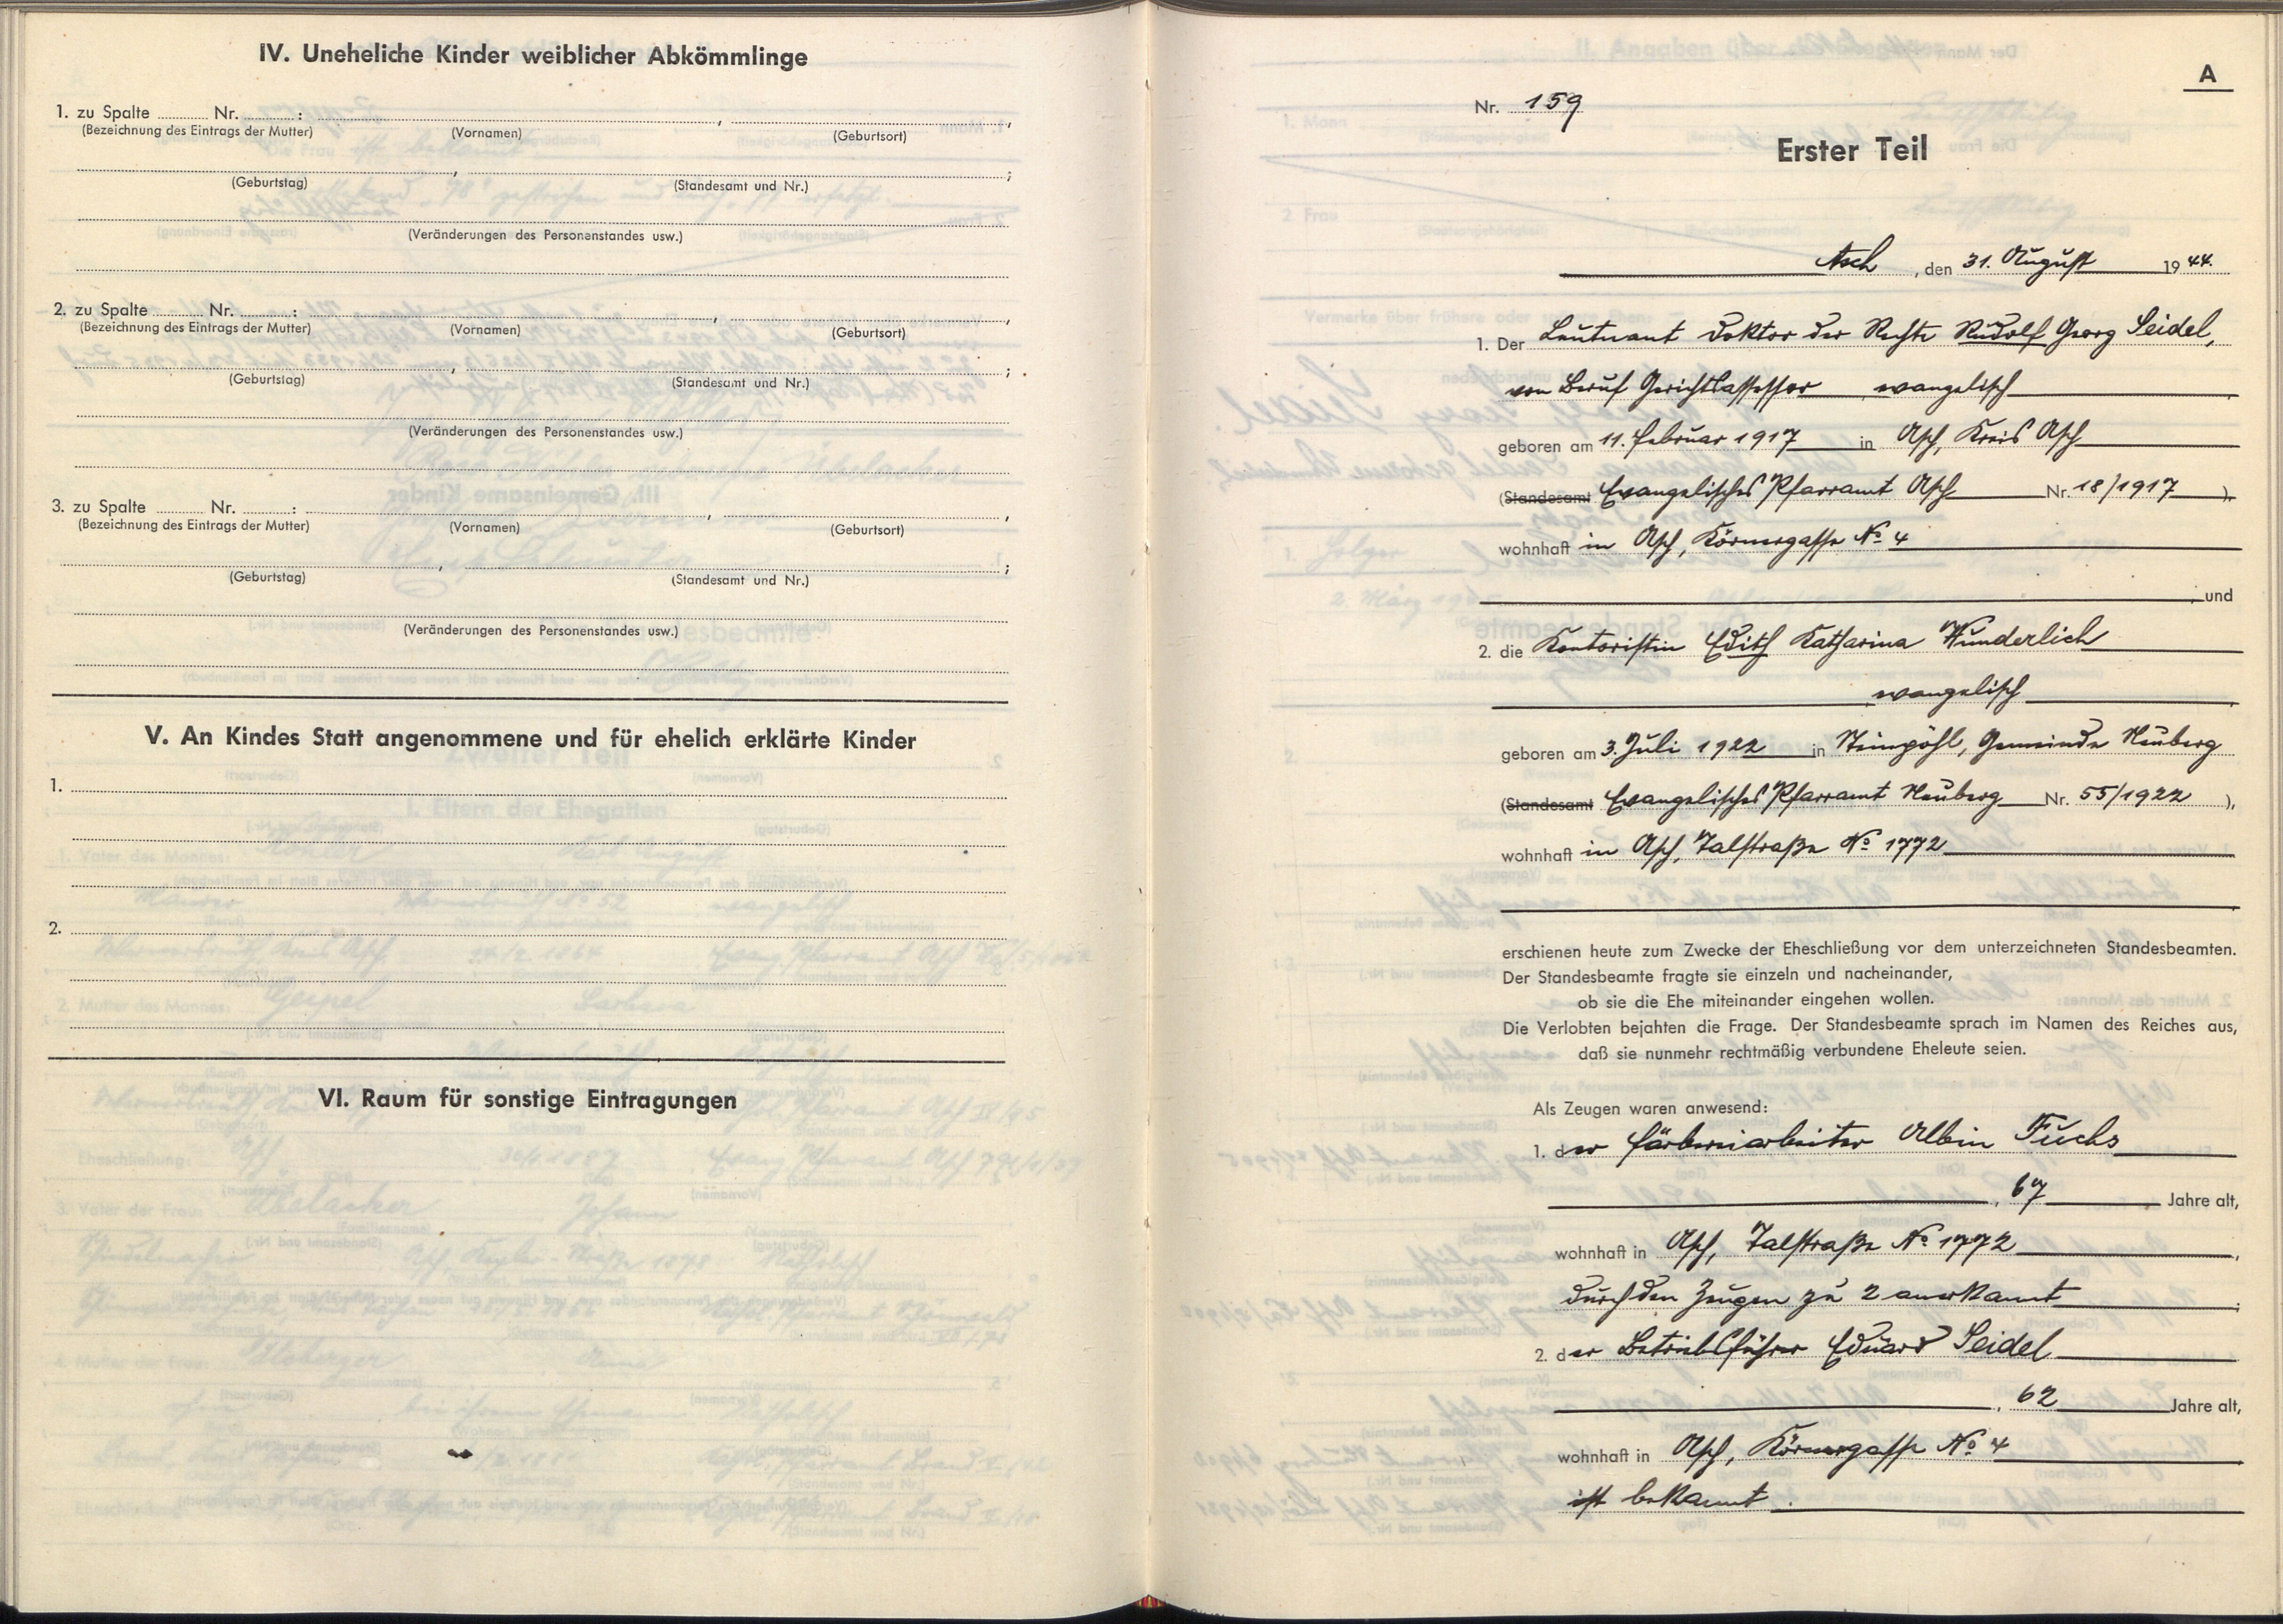 IV. Uneheliche Kinder weiblicher Abkömmlinge
1. zu Spalte ........ Nr. ........ : ........ , ........ ,
(Bezeichnung des Eintrags der Mutter) (Vornamen) (Geburtsort)
........ , ........ ;
(Geburtstag) (Standesamt und Nr.)
(Veränderungen des Personenstandes usw.)
2. zu Spalte ........ Nr. ........ : ........ , ........ ,
(Bezeichnung des Eintrags der Mutter) (Vornamen) (Geburtsort)
........ , ........ ;
(Geburtstag) (Standesamt und Nr.)
(Veränderungen des Personenstandes usw.)
3. zu Spalte ........ Nr. ........ : ........ , ........ ,
(Bezeichnung des Eintrags der Mutter) (Vornamen) (Geburtsort)
........ , ........ ;
(Geburtstag) (Standesamt und Nr.)
(Veränderungen des Personenstandes usw.)
V. An Kindes Statt angenommene und für ehelich erklärte Kinder
1.
2.
VI. Raum für sonstige Eintragungen
A
Nr. 159
Erster Teil
Asch, den 31. August 1944.
1. Der Leutnant Doktor der Rechte Rudolf Georg Seidel,
von Beruf Gerichtsassessor, evangelisch,
geboren am 11. Februar 1917 in Asch, Kreis Asch
(Standesamt Evangelisches Pfarramt Asch Nr. 18/1917),
wohnhaft in Asch, Körnergasse No 4
, und
2. die Kontoristin Edith Katharina Wunderlich
, evangelisch,
geboren am 3. Juli 1922 in Steingöhl, Gemeinde Neuberg
(Standesamt Evangelisches Pfarramt Neuberg Nr. 55/1922),
wohnhaft in Asch, Talstraße No 1772
erschienen heute zum Zwecke der Eheschließung vor dem unterzeichneten Standesbeamten.
Der Standesbeamte fragte sie einzeln und nacheinander,
ob sie die Ehe miteinander eingehen wollen.
Die Verlobten bejahten die Frage. Der Standesbeamte sprach im Namen des Reiches aus,
daß sie nunmehr rechtmäßig verbundene Eheleute seien.
Als Zeugen waren anwesend:
1. der Färbereiarbeiter Albin Fuchs
, 67 Jahre alt,
wohnhaft in Asch, Talstraße No 1772,
durch den Zeugen zu 2 anerkannt;
2. der Betriebsführer Eduard Seidel
, 62 Jahre alt,
wohnhaft in Asch, Körnergasse No 4
ist bekannt.